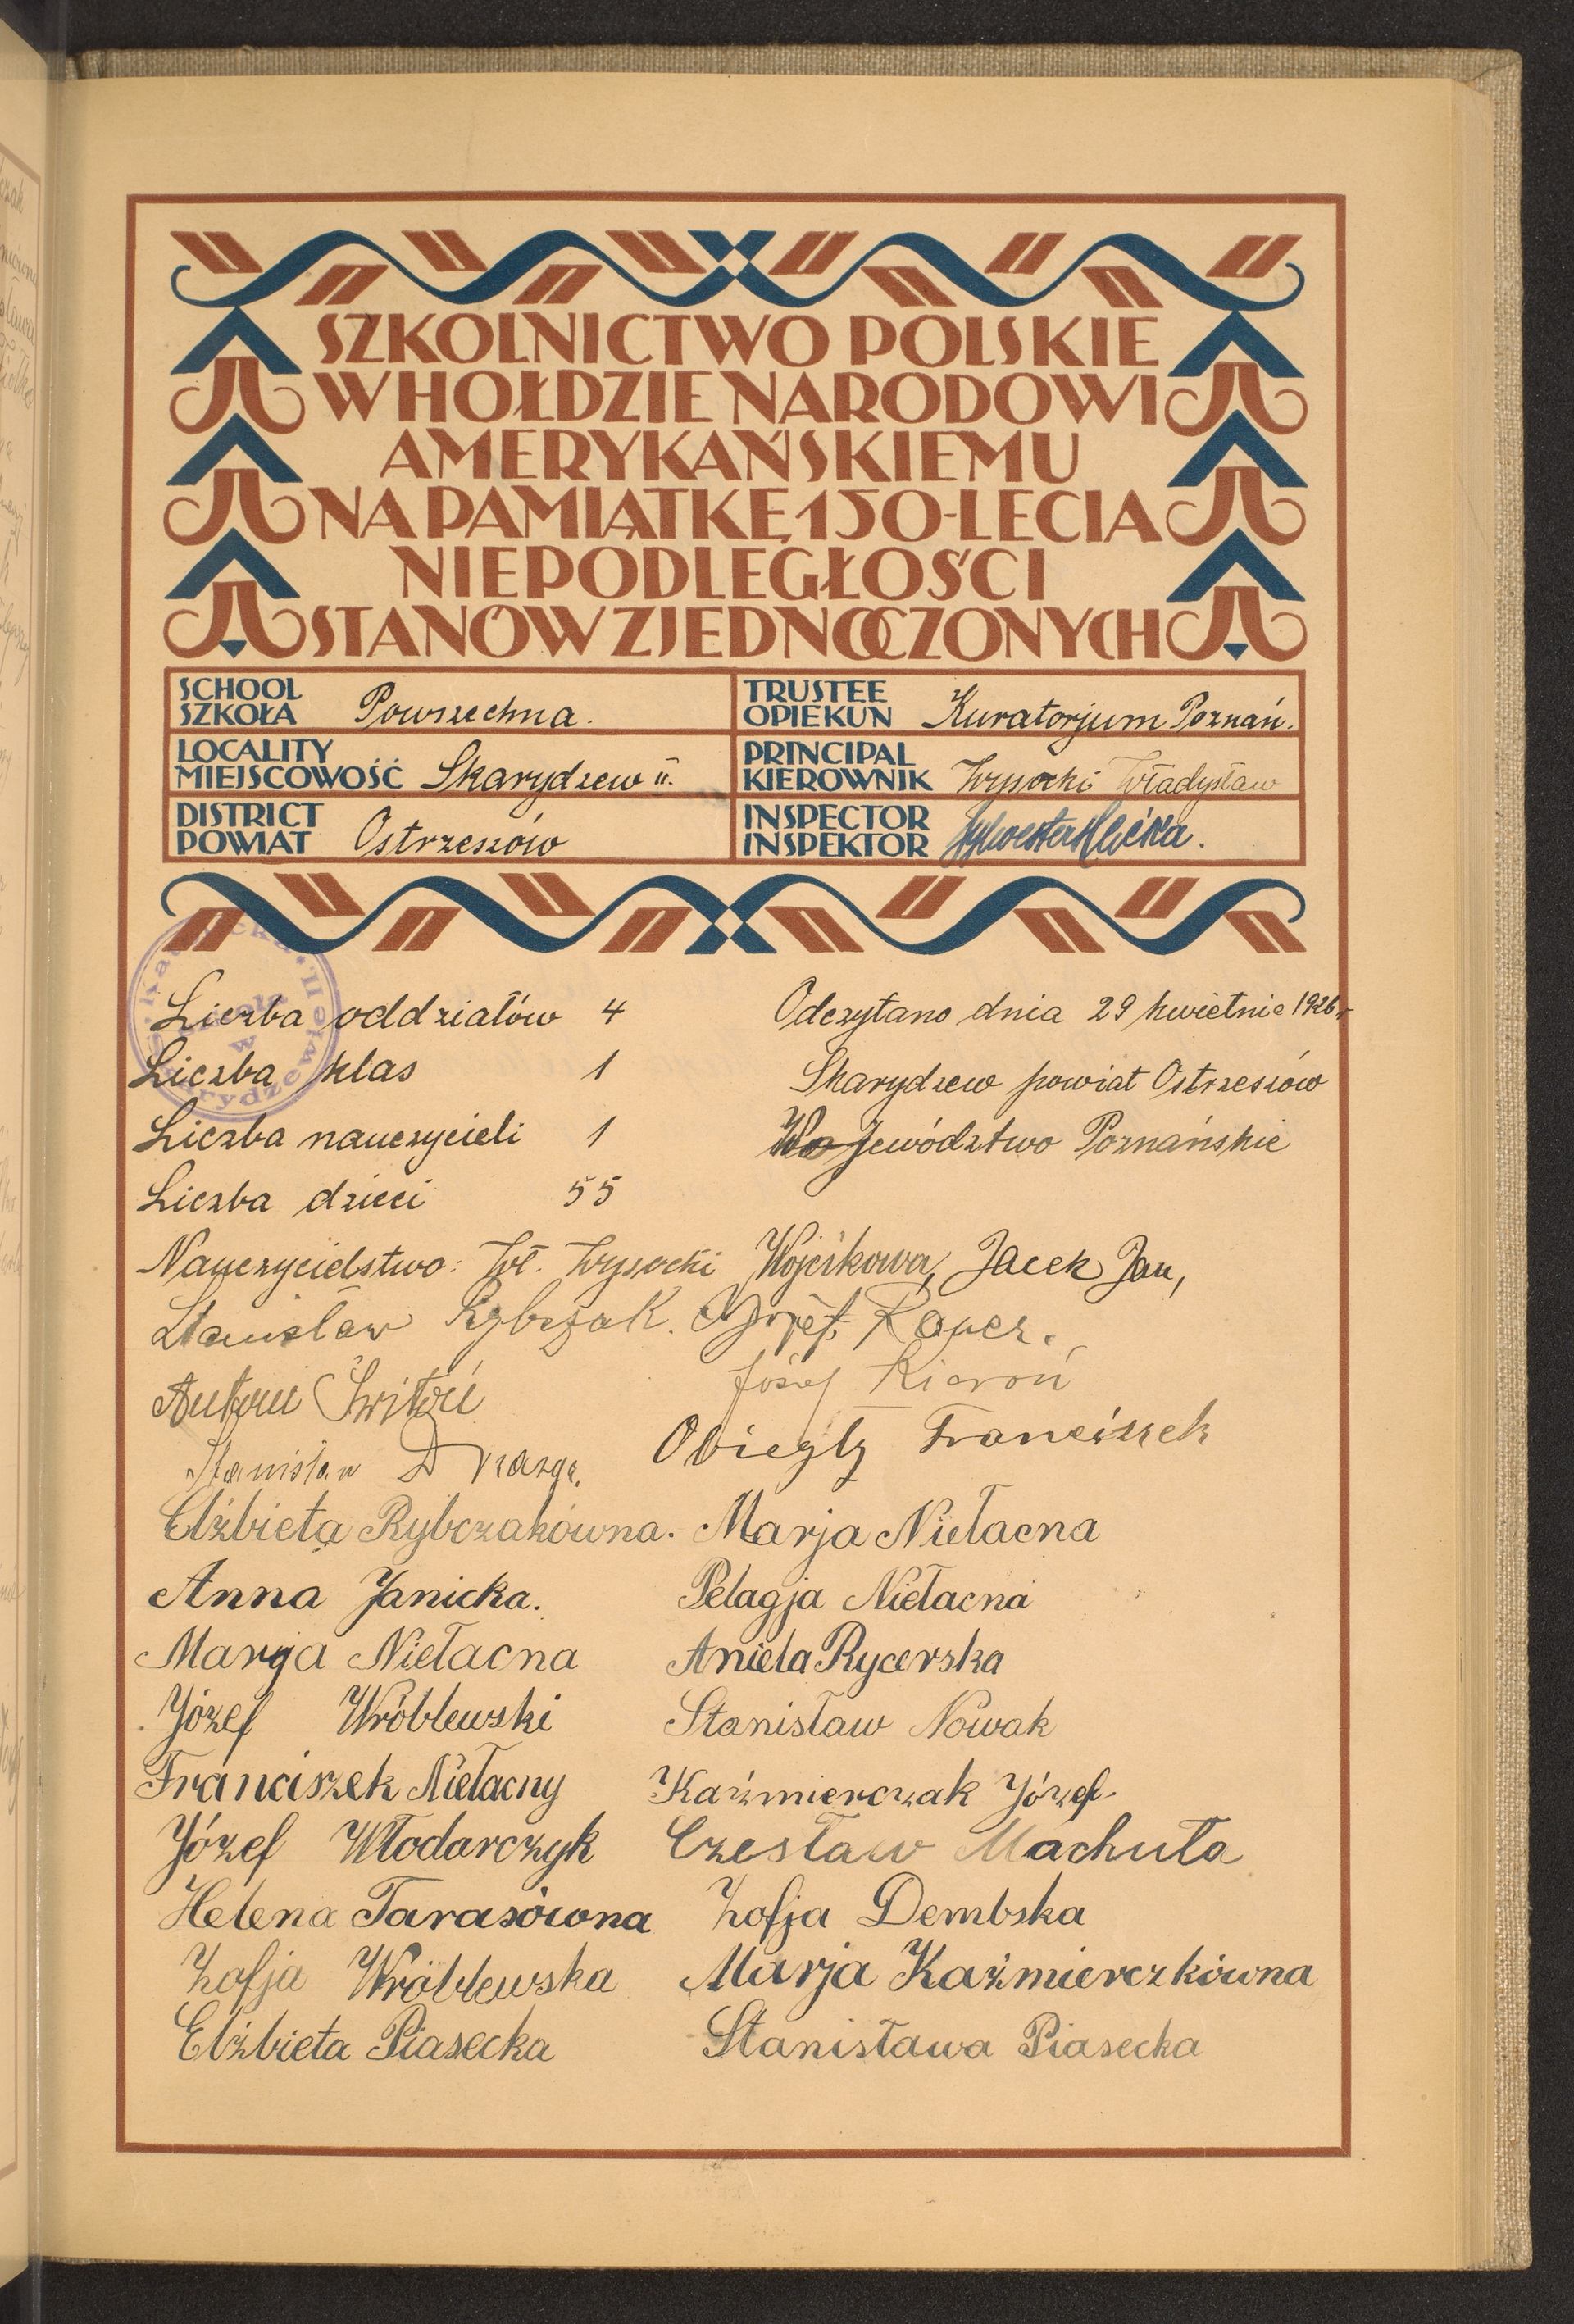 SZKOLNICTWO POLSKIE
W HOŁDZIE NARODOWI
AMERYKAŃSKIEMU
NA PAMIĄTKĘ 150-LECIA
NIEPODLEGŁOŚCI
STANÓW ZJEDNOCZONYCH
SCHOOL
SZKOŁA Powszechna.
TRUSTEE
OPIEKUN Kuratorjum Poznań.
LOCALITY
MIEJSCOWOŚĆ Skarydzew II.
PRINCIPAL
KIEROWNIK Wysocki Władysław
DISTRICT
POWIAT Ostrzeszów
INSPECTOR
INSPEKTOR Sylwester
Liczba oddziałów 4
Liczba klas 1
Liczba nauczycieli 1
Liczba dzieci 55
Odczytano dnia 29 kwietnia 1926 r.
Skarydzew powiat Ostrzeszów
Województwo Poznańskie
Nauczycielstwo: Wł. Wysocki Wójcikowa, Jacek Jan,
Stanisław Rybczak. Józef
Antoni
Józef Kieroń
Stanisław Drazga.
Obiegły Franciszek
Elżbieta Rybczakówna. Marja Niełacna
Anna Janicka. Pelagja Niełacna
Marja Niełacna Aniela Rycerska
Józef Wróblewski Stanisław Nowak
Franciszek Niełacny Kaźmierczak Józef.
Józef Włodarczyk Czesław Machuła
Helena Tarasówna Zofja Dembska
Zofja Wróblewska Marja Kaźmierczkówna
Elżbieta Piasecka Stanisława Piasecka